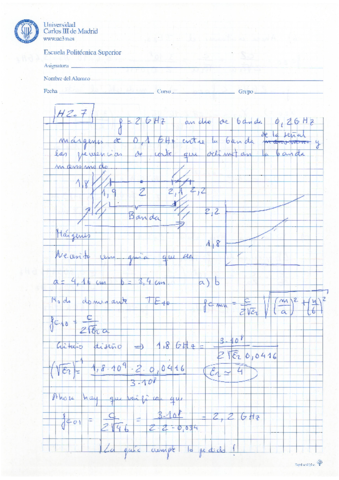 Universidad
Carlos III de Madrid
www.uc3m.es
Escuela Politécnica Superior
Asignatura
Nombre del Alumno
Fecha Curso Grupo
H2.7
f = 2 GHz ancho de banda 0,2 GHz
márgenes de 0,1 GHz entre la banda de la señal y
las frecuencias de corte que delimitan la banda
monomodo
1,8 1,9 2 2,1 2,2
Banda
Márgenes
2,2
1,8
Necesito una guía que sea
a = 4,16 cm b = 3,4 cm a > b
Modo dominante TE10 fcmn = c / 2√εr √((m/a)² + (n/b)²)
fc10 = c / 2√εr a
Criterio diseño ⇒ 1.8 GHz = 3·10⁸ / 2√εr 0,0416
(√εr)⁻¹ = 1,8·10⁹·2·0,0416 / 3·10⁸ εr ≈ 4
Ahora hay que verificar que
fc01 = c / 2√εr b = 3·10⁸ / 2·2·0,034 = 2,2 GHz
¡La guía cumple lo pedido!